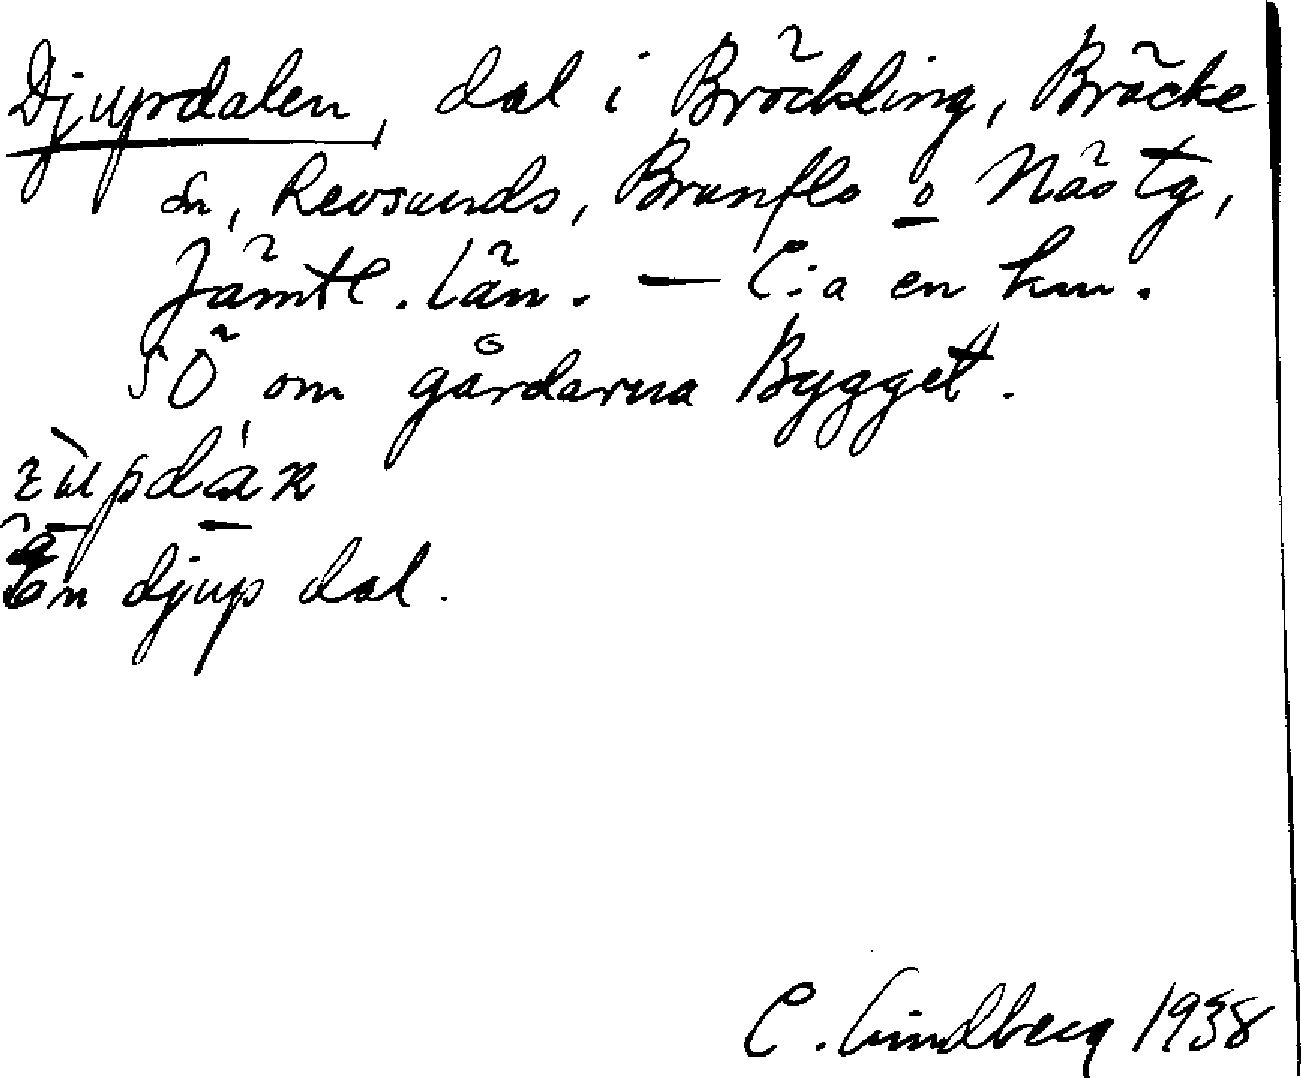 Djupdalen, dal i Bröckling, Bräcke
sn, Revsunds, Brunflo o Näs tg,
Jämtl. län. — C:a en km.
SÖ om gårdarna Bygget.
En djup dal.
C. Lindberg 1938